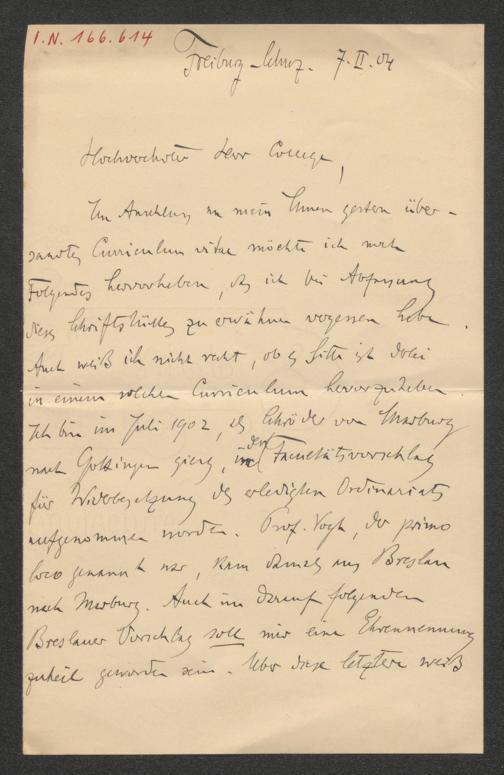 I.N. 166.614
Freiburg-Schweiz. 7.II.04
Hochverehrter Herr College,
Im Anschluss an mein Ihnen gestern über-
sandtes Curriculum vitae möchte ich noch
Folgendes hervorheben, das ich bei Abfassung
dieses Schriftstückes zu erwähnen vergessen habe.
Auch weiß ich nicht recht, ob es Sitte ist dabei
in einem solchen Curriculum hervorzuheben.
Ich bin im Juli 1902, als Schröder von Marburg
nach Göttingen gieng, in den Facultätsvorschlag
für Wiederbesetzung des erledigten Ordinariats
aufgenommen worden. Prof. Vogt, der primo
loco genannt war, kam damals aus Breslau
nach Marburg. Auch im darauf folgenden
Breslauer Vorschlag soll mir eine Ehrennennung
zuteil geworden sein. Über diese letztere weiß